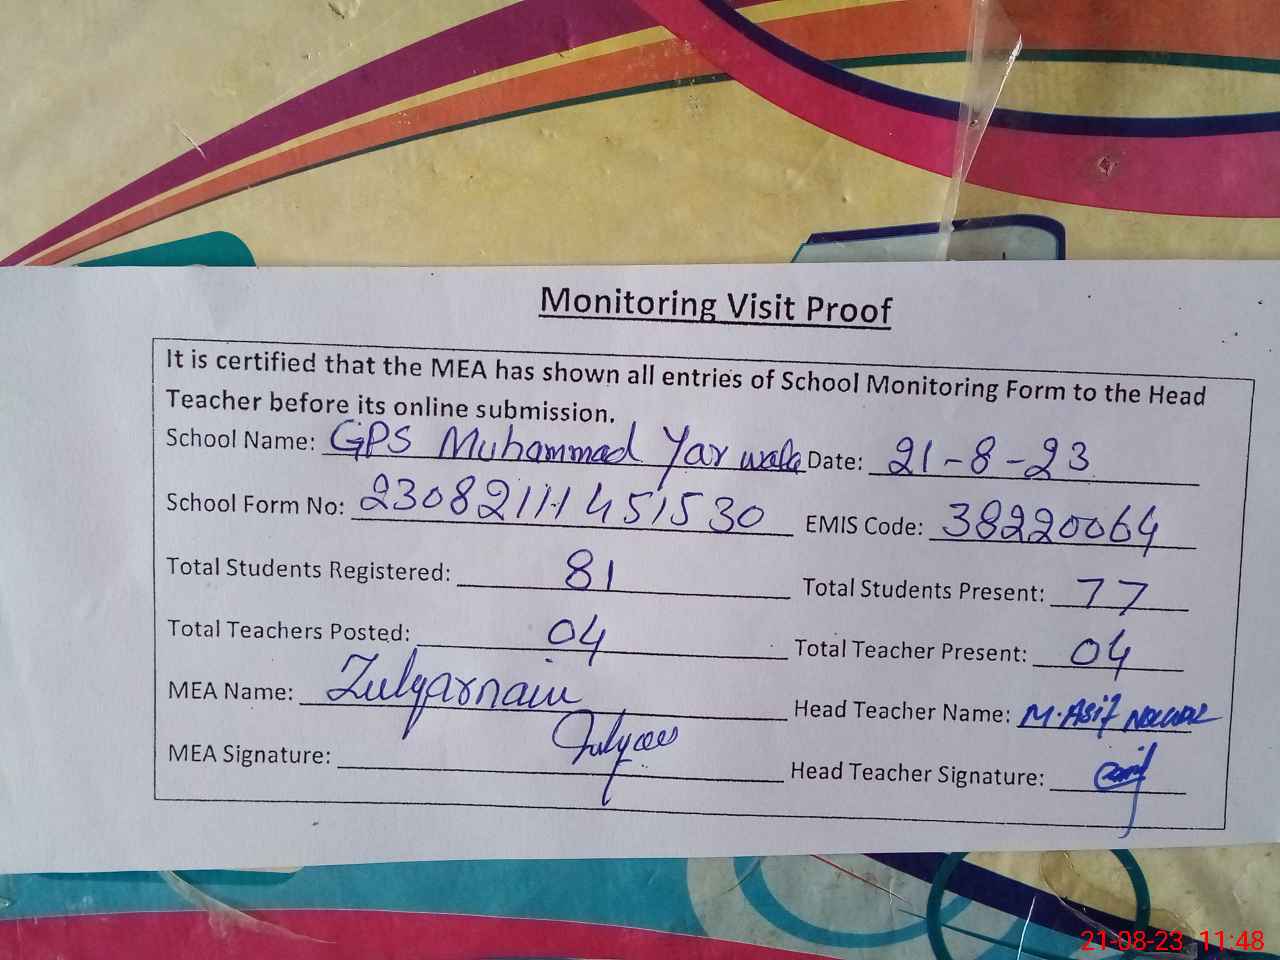 Monitoring Visit Proof
It is certified that the MEA has shown all entries of School Monitoring Form to the Head
Teacher before its online submission.
School Name: GPS Muhammad Yar wala Date: 21-8-23
School Form No: 230821111451530 EMIS Code: 38220064
Total Students Registered: 81 Total Students Present: 77
Total Teachers Posted: 04 Total Teacher Present: 04
MEA Name: Zulqarnain Head Teacher Name: M. Asif
MEA Signature: Head Teacher Signature:
21-08-23 11:48